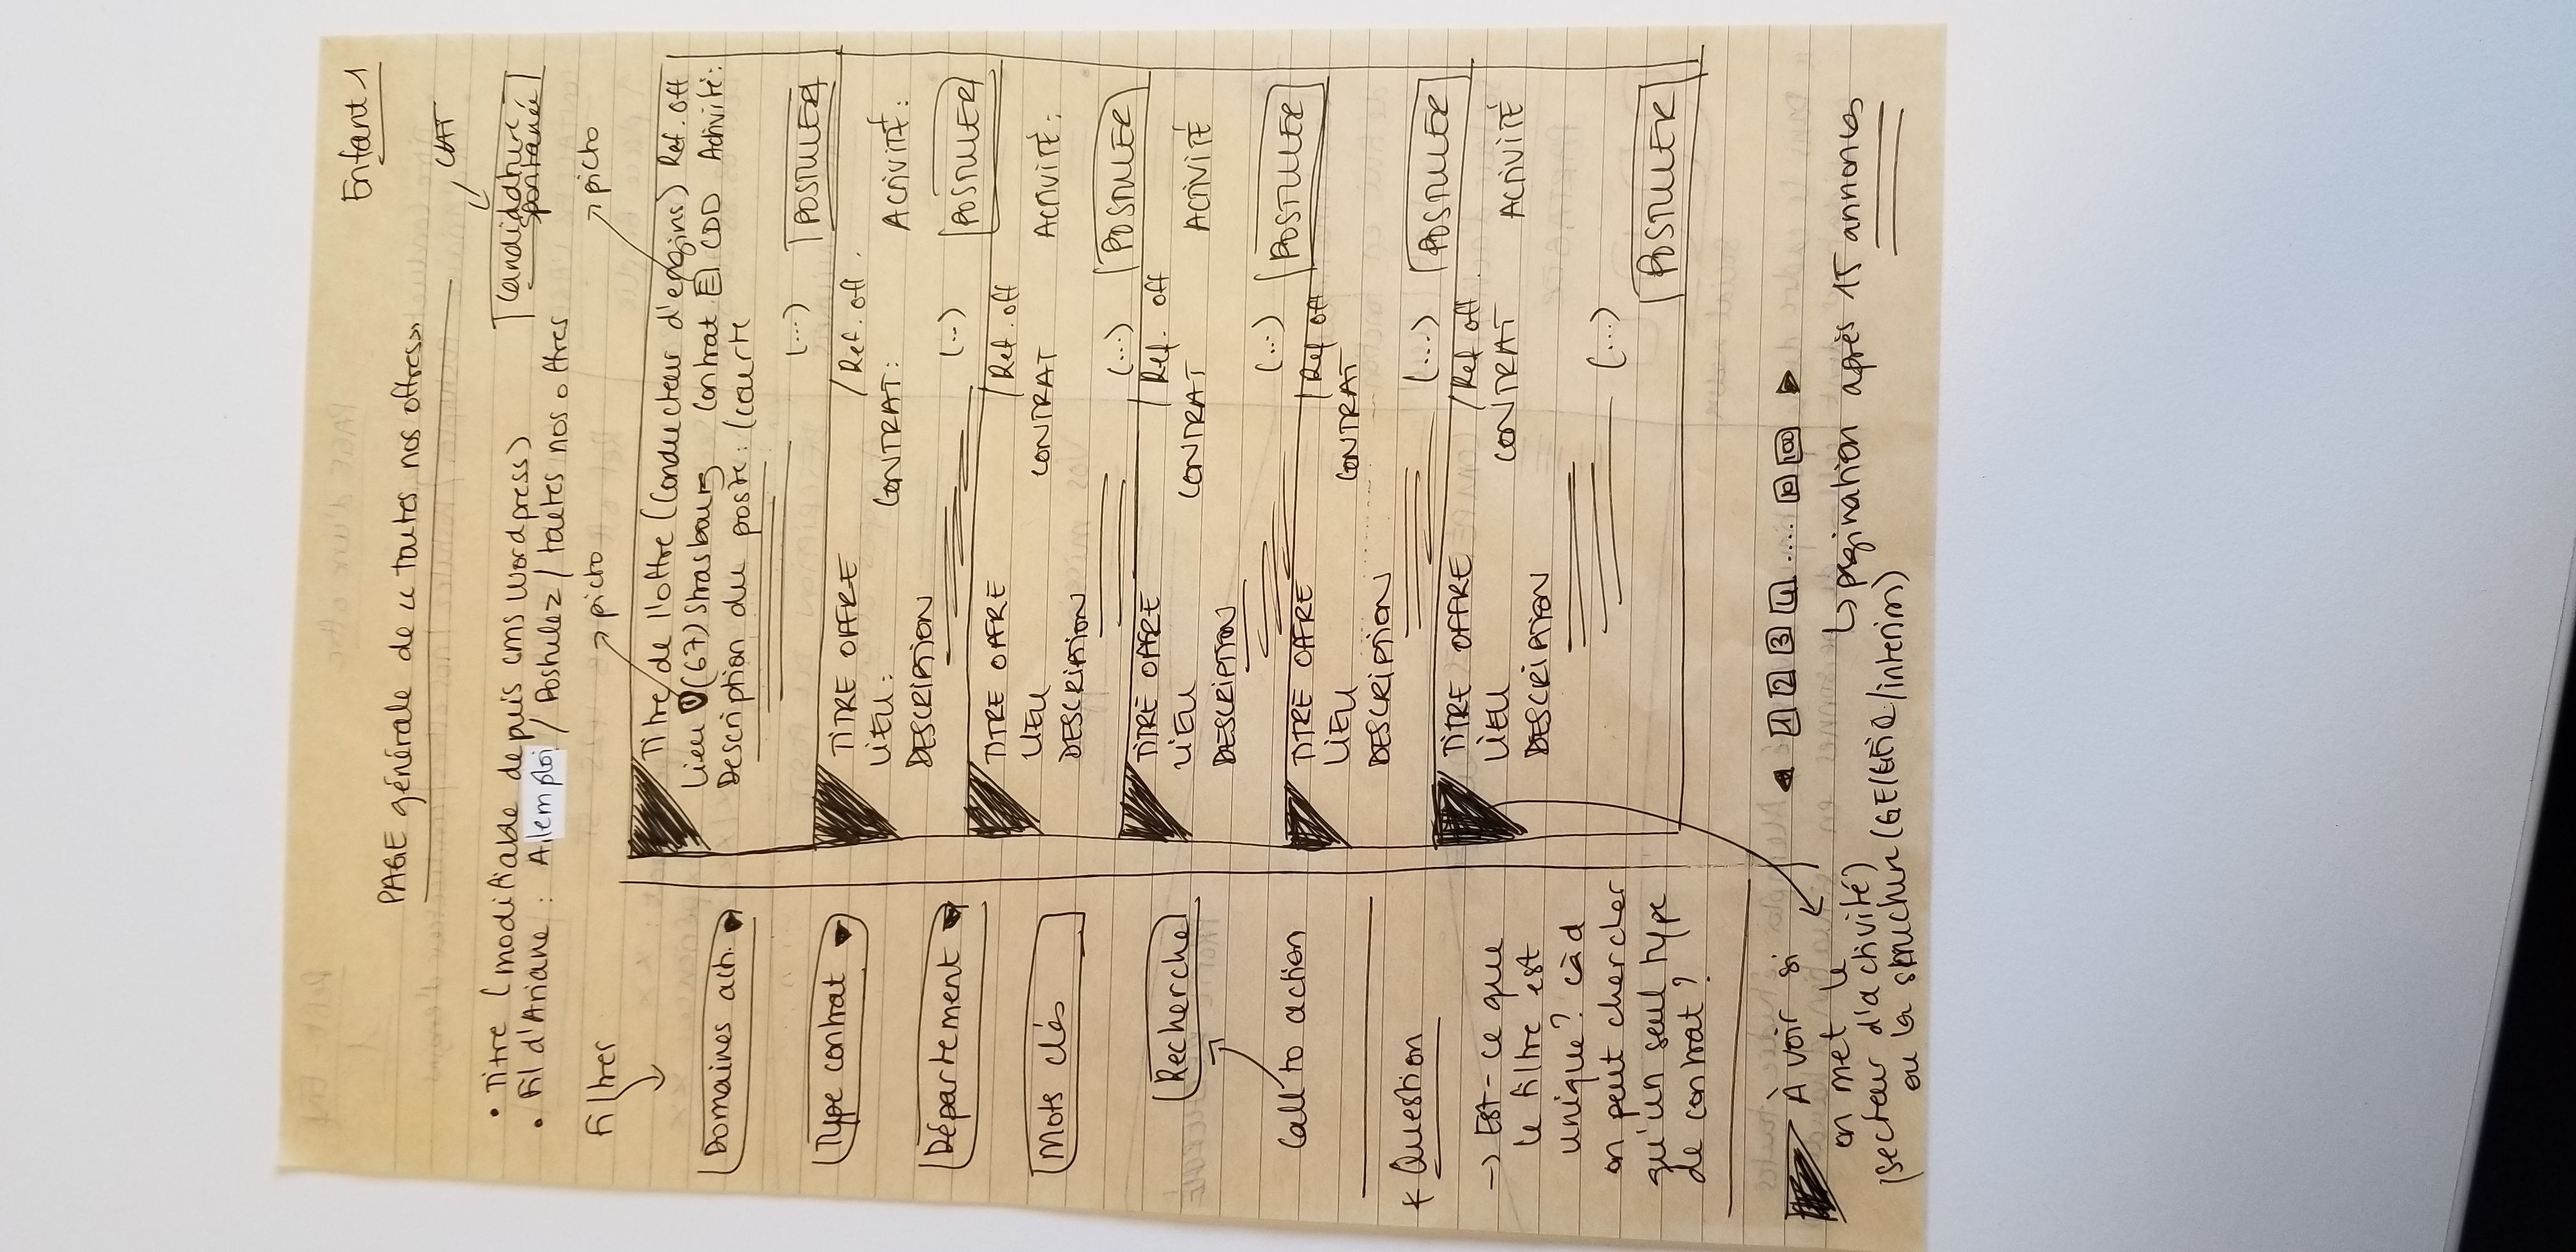 Enfant 1
PAGE générale de « toutes nos offres »
• Titre (modifiable depuis cms wordpress)
• Fil d'Ariane : Alemploi / Postulez / toutes nos offres
Candidature spontanée
Filtrer
picto
picto
Domaines acti.
Type contrat
Département
Mots clés
Recherche
Call to action
* Question
→ Est-ce que
le filtre est
unique? càd
on peut chercher
qu'un seul type
de contrat ?
Titre de l'offre (Conducteur d'engins) Ref. off
Lieu (67) Strasbourg Contrat CDD Activité:
Description du poste: (courte
(...) POSTULER
TITRE OFFRE / Ref. off.
LIEU: CONTRAT: ACTIVITÉ:
DESCRIPTION
(...) POSTULER
TITRE OFFRE / Ref. off
LIEU CONTRAT ACTIVITÉ:
DESCRIPTION
(...) POSTULER
TITRE OFFRE / Ref. off
LIEU CONTRAT ACTIVITÉ
DESCRIPTION
(...) POSTULER
TITRE OFFRE / Ref off
LIEU CONTRAT
DESCRIPTION
(...) POSTULER
TITRE OFFRE / Ref off
LIEU CONTRAT ACTIVITÉ
DESCRIPTION
(...) POSTULER
1 2 3 4 ..... 10 100
↳ pagination après 15 annonces
À voir si
on met le
(secteur d'activité)
ou la structure (GE/GEIQ/interim)